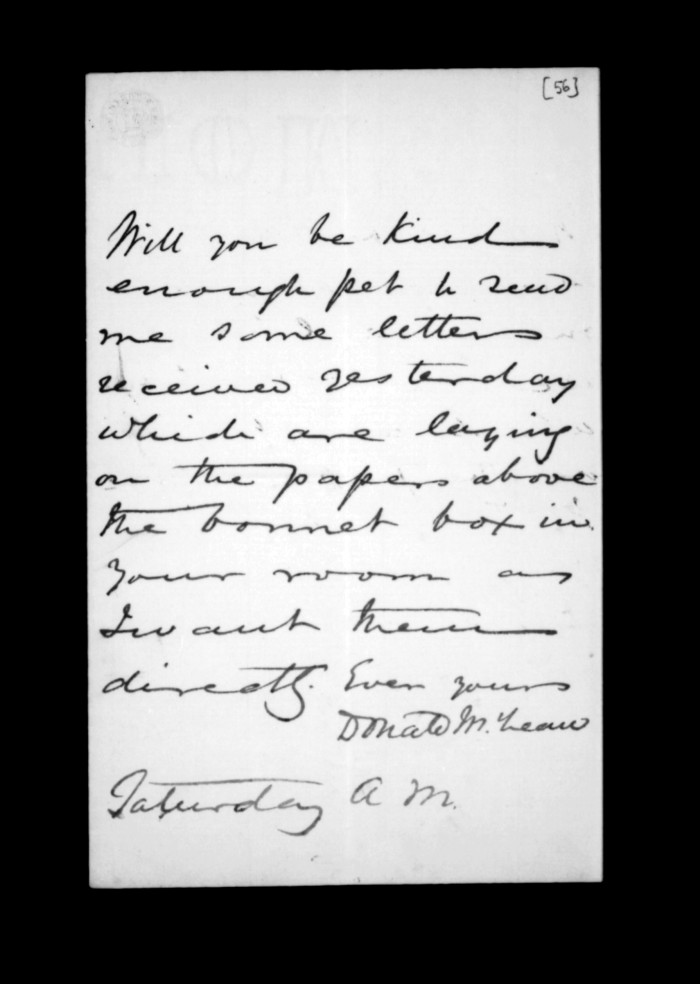 [56]
Will you be kind
enough pet to send
me some letters
received yesterday
which are laying
on the papers above
the bonnet box in
your room as
I want them
directly. Ever yours
Donald McLean
Saturday A M.